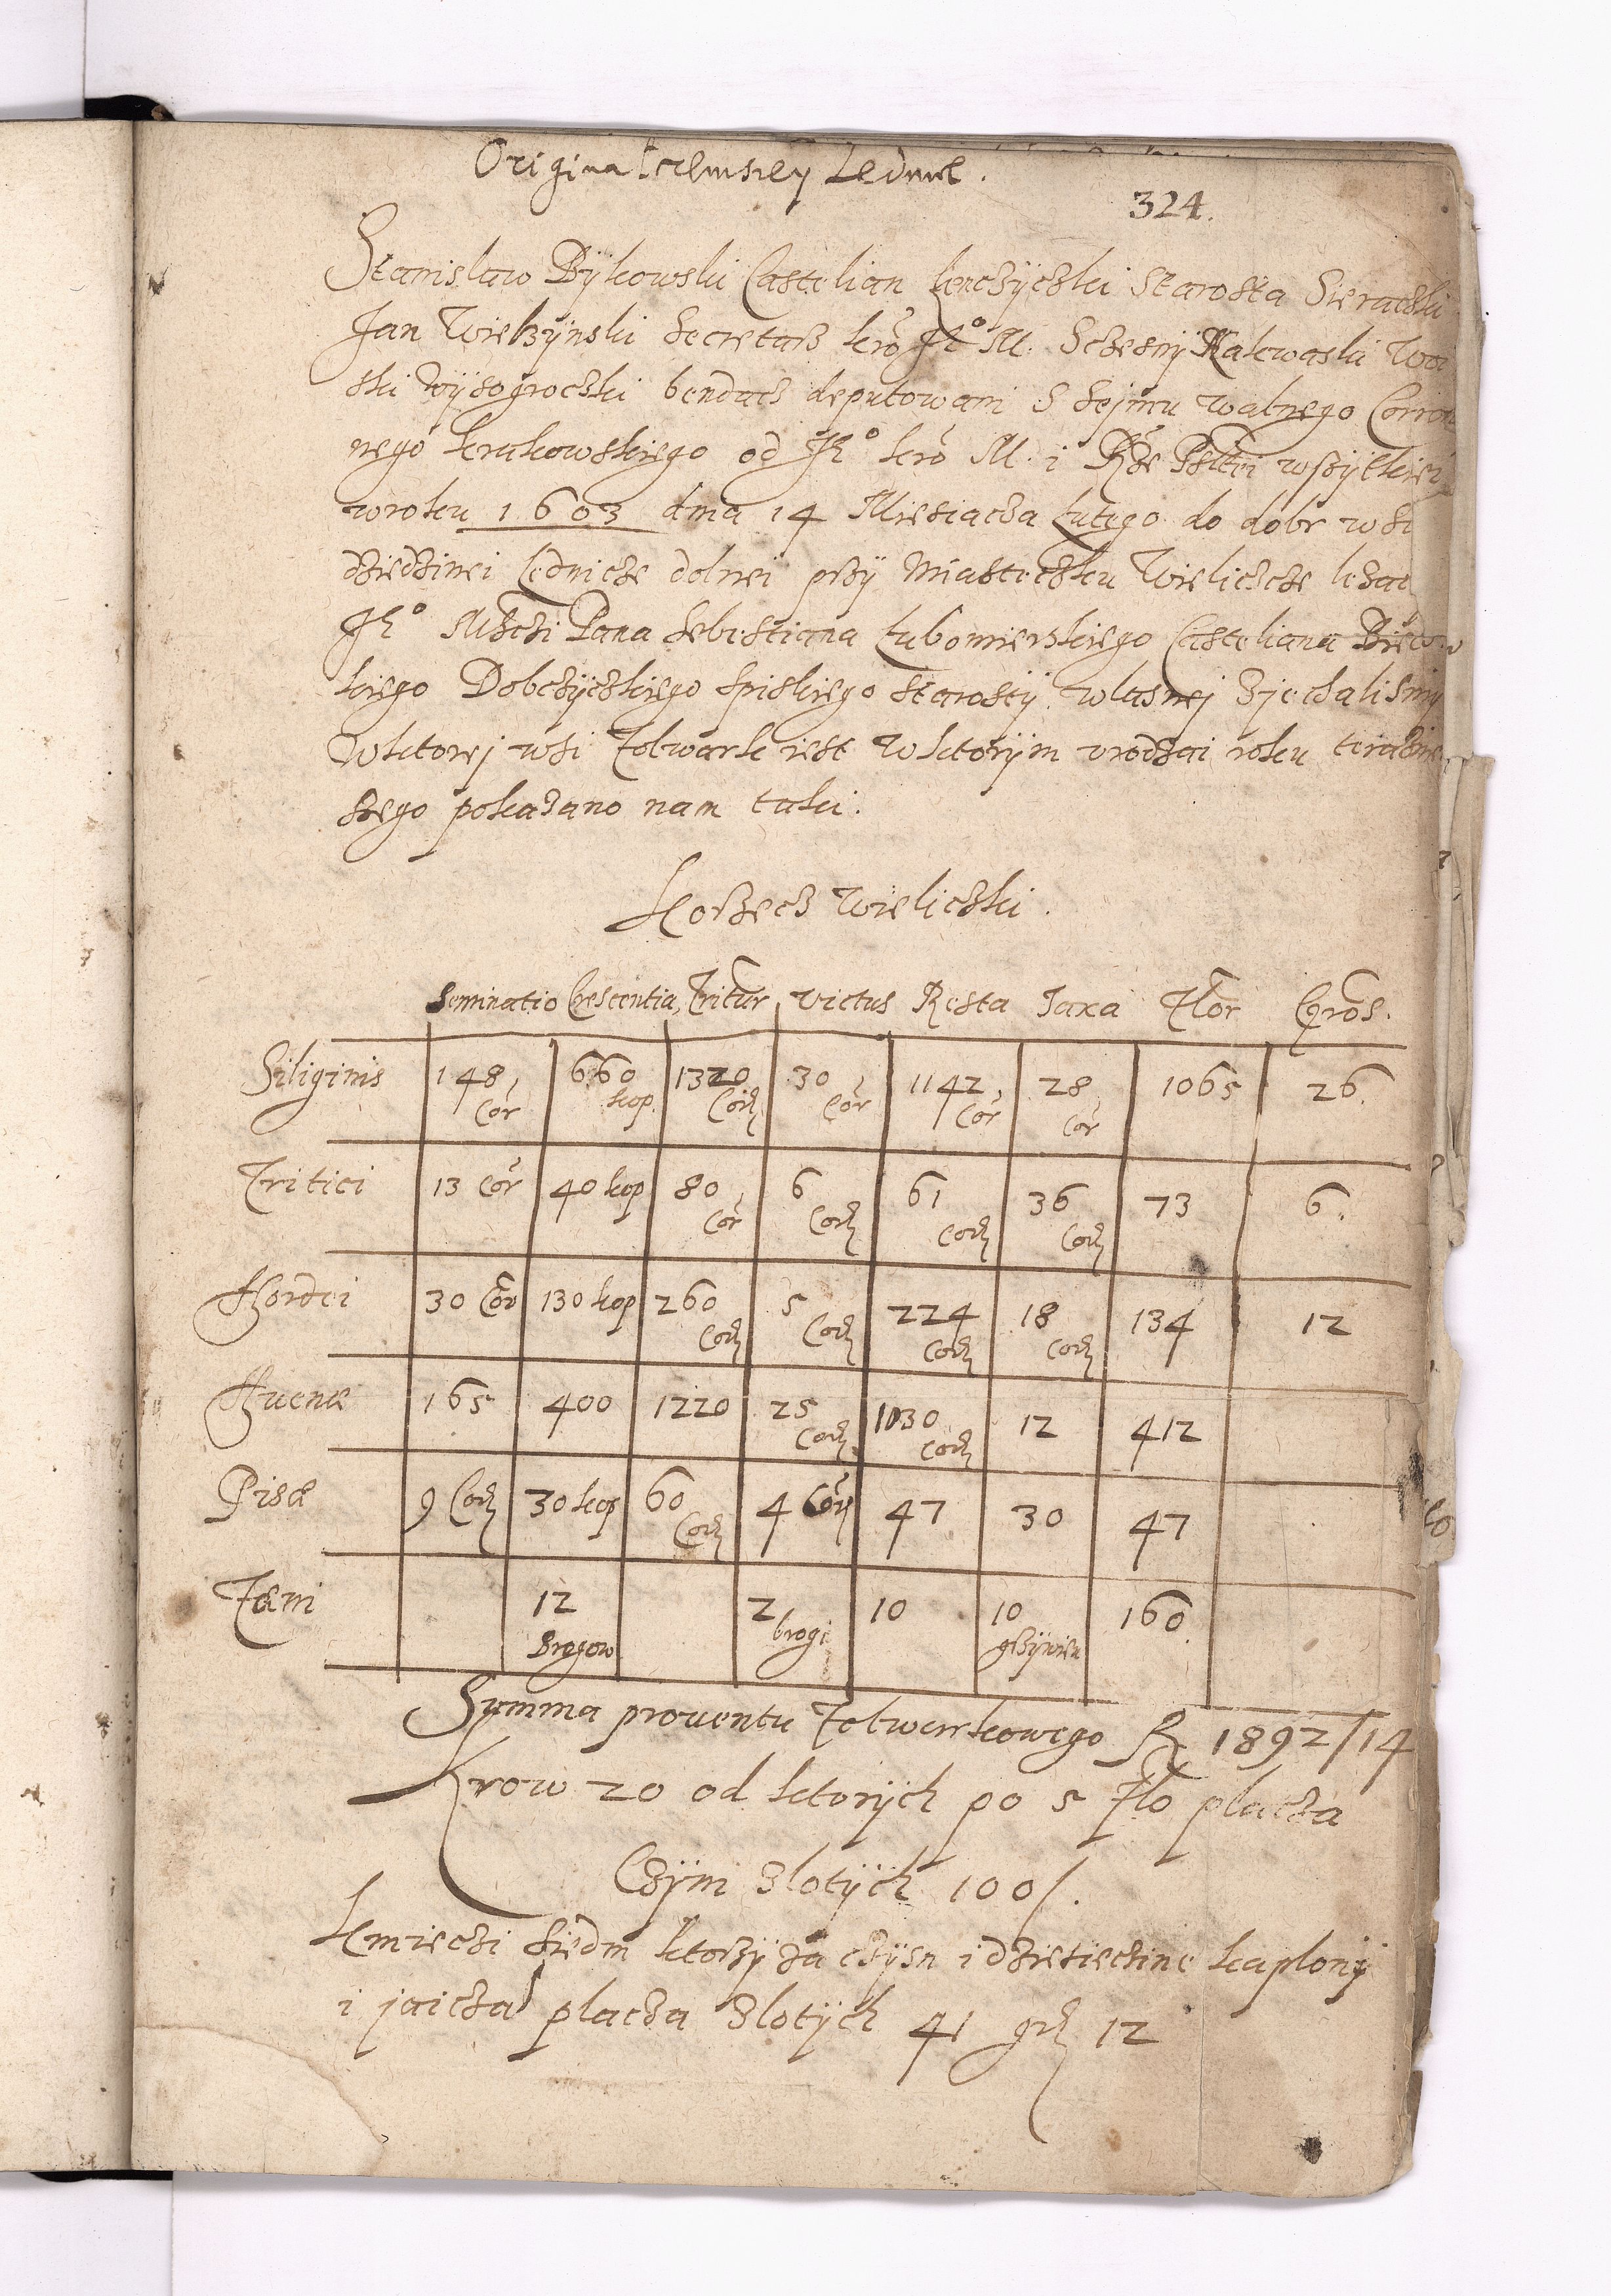 Origina
324.
Stanislaw Bÿkowski Castelian Lenczÿczki Starosta Sieraczki
Jan Wielzÿnski Secretarz Kro Je° M. Sczesnÿ Kalowaski Woi
ski Wÿsogroczki bendacz deputowani S Sejmu walnego Corron
nego krakowskiego od Je° kro M. i Rze Psltei wssÿtkiei
w roku 1603 dnia 14 Miesiacza Lutego do dobr wsi
dziedzinei Lednicze dolnei przÿ Miasteczku Wieliczcze leza
Je° Msczi Pana Sebestiana Lubomierskiego Casteliana Biec
kiego Dobczÿczkiego Spiskiego Starostÿ wlasnej zjechalismÿ
W ktorej wsi Folwark iest w ktorÿm vrodzai roku teraznie
szego pokazano nam taki.
Korzecz Wieliczki.
Seminatio Crescentia Tritur Victus Resta Taxa Flor Gros.
Siliginis 148 Cor 660 kop 1320 Cor 30 Cor 1142 Cor 28 Cor 1065 26.
Tritici 13 Cor 40 kop 80 Cor 6 Cor 61 Cor 36 Cor 73 6.
Hordei 30 Cor 130 kop 260 Cor 5 Cor 224 Cor 18 Cor 134 12
Auenæ 165 400 1220 25 Cor 1030 Cor 12 412
Pisæ 9 Cor 30 kop 60 Cor 4 Cor 47 30 47
Fœni 12 Brogow 2 brogi 10 10 grzÿwien 160
Summa prouentu Folwarkowego R 1892/14
Krow 20 od ktorÿch po 5 Flo placza
Czÿni Zlotÿch 100/.
Kmieczi siedm ktorzÿ za czÿsn i dziesieczine kaplonÿ
i jaicza placza Zlotÿch 41 gr 12